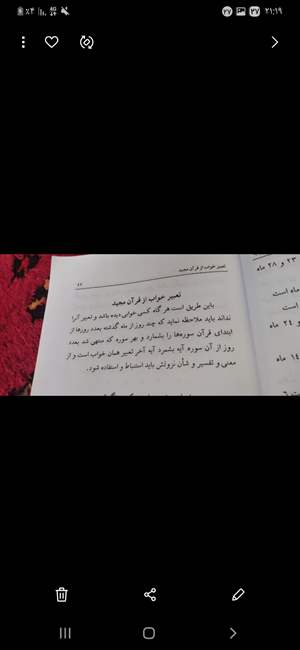 ٢١:١٩
٣٧
٣٧
4G
٪۴
تعبیر خواب از قرآن مجید
۸۷
تعبیر خواب از قرآن مجید
باین طریق است هر گاه کسی خوابی دیده باشد و تعبیر آنرا
نداند باید ملاحظه نماید که چند روز از ماه گذشته بعدد روزها از
ابتدای قرآن سوره‌ها را بشمارد و بهر سوره که منتهی شد بعدد
روز از آن سوره آیه بشمرد آیه آخر تعبیر همان خواب است و از
معنی و تفسیر و شأن نزولش باید استنباط و استفاده شود.
۲۳ و ۲۸ ماه
ماه است
است
و ۲۴ ماه
۱۴ ماه